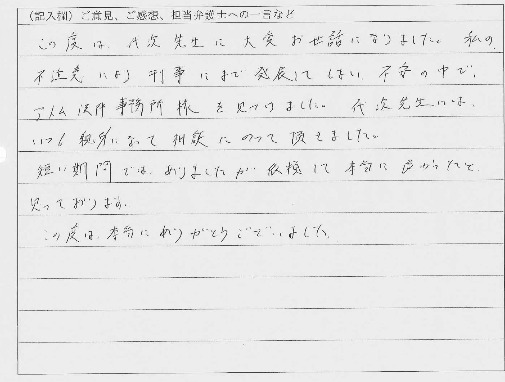 (記入欄) ご意見、ご感想、担当弁護士への一言など
この度は、代次先生に大変お世話になりました。私の
不注意により刑事にまで発展してしまい不安の中で、
アトム法律事務所様を見つけました。代次先生には、
いつも親身になって相談にのって頂きました。
短い期間ではありましたが依頼して本当に良かったと
思っております。
この度は、本当にありがとうございました。